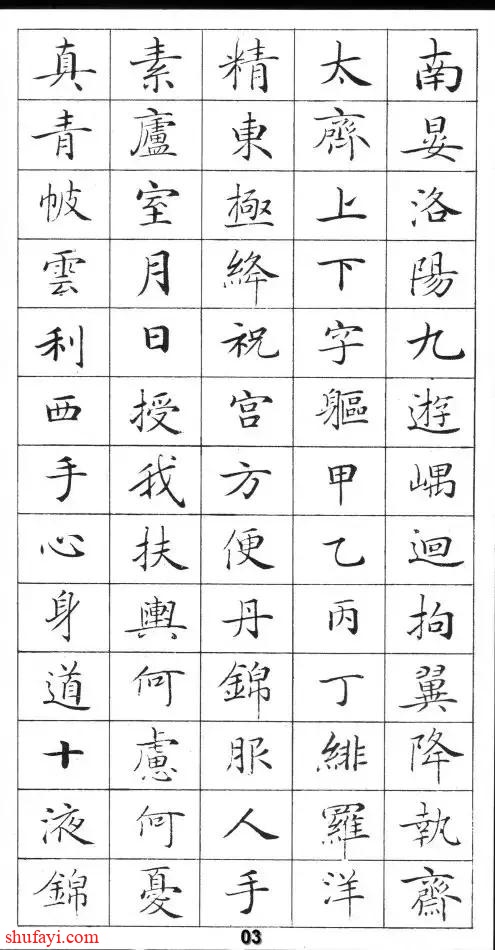 南晏洛陽九遊嵎迴拘翼降執齋
太齊上下字軀甲乙丙丁緋羅洋
精東極絳祝宮方便丹錦服人手
素廬室月日授我扶輿何慮何憂
真青帔雲利西手心身道十液錦
03
shufayi.com